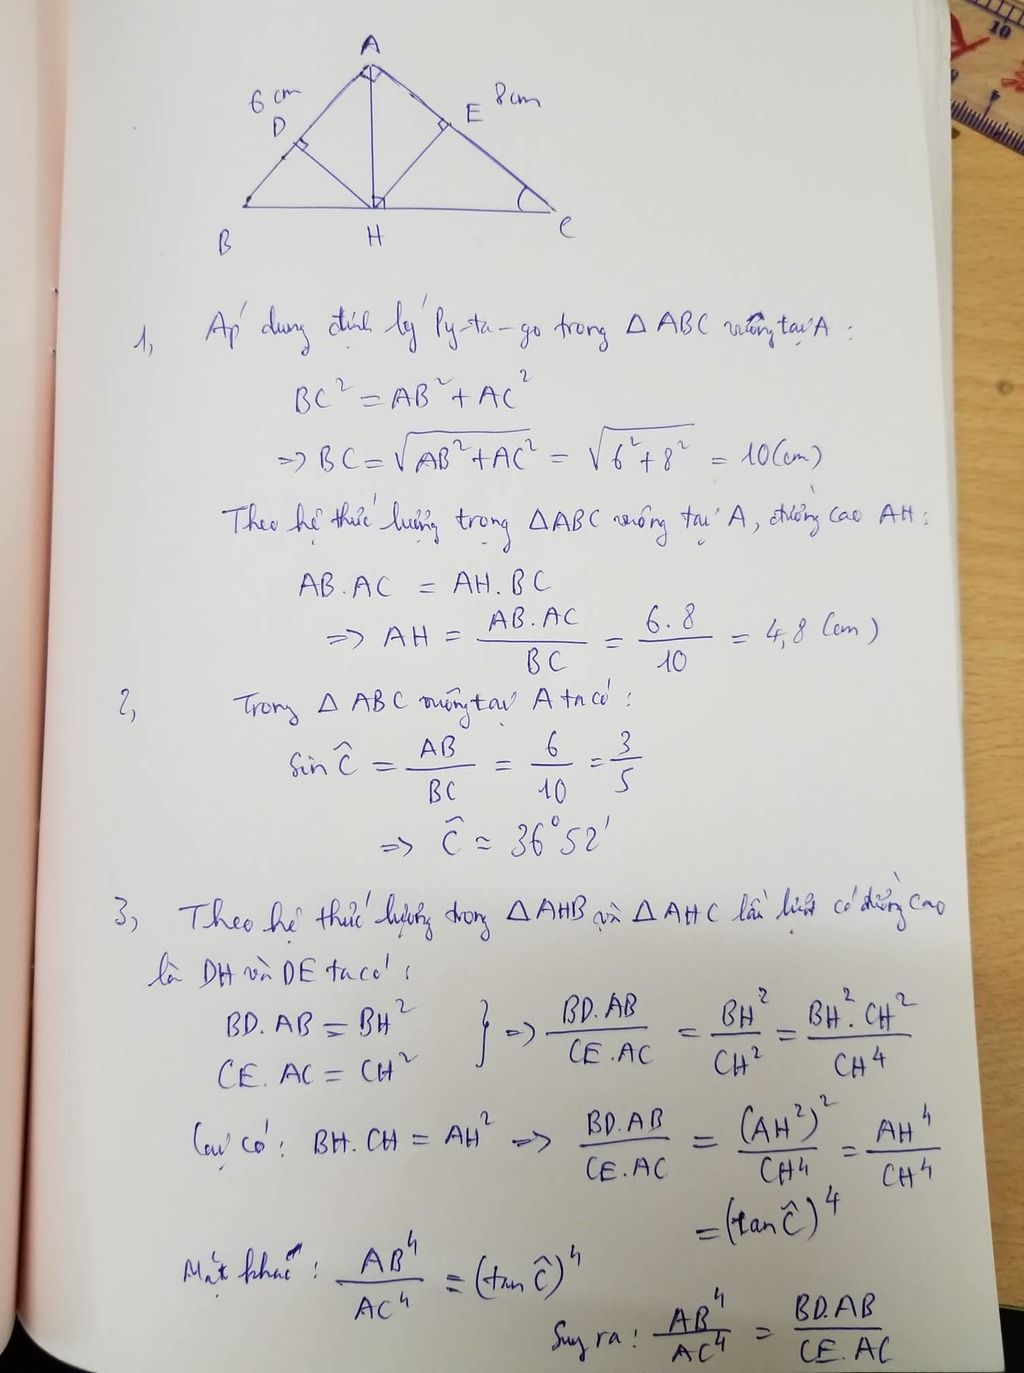 A
6 cm
8cm
D
E
B
H
C
1, Áp dụng định lý Py-ta-go trong △ABC vuông tại A :
BC² = AB² + AC²
=> BC = √(AB² + AC²) = √(6² + 8²) = 10 (cm)
Theo hệ thức lượng trong △ABC vuông tại A, đường cao AH :
AB . AC = AH . BC
=> AH = AB . AC / BC = 6 . 8 / 10 = 4,8 (cm)
2, Trong △ABC vuông tại A ta có :
Sin Ĉ = AB / BC = 6 / 10 = 3 / 5
=> Ĉ ≈ 36°52'
3, Theo hệ thức lượng trong △AHB và △AHC lần lượt có đường cao
là DH và DE ta có :
BD . AB = BH²
CE . AC = CH² } => BD . AB / CE . AC = BH² / CH² = BH² . CH² / CH⁴
Lại có : BH . CH = AH² => BD . AB / CE . AC = (AH²)² / CH⁴ = AH⁴ / CH⁴
= (tan Ĉ)⁴
Mặt khác : AB⁴ / AC⁴ = (tan Ĉ)⁴
Suy ra : AB⁴ / AC⁴ = BD . AB / CE . AC
10